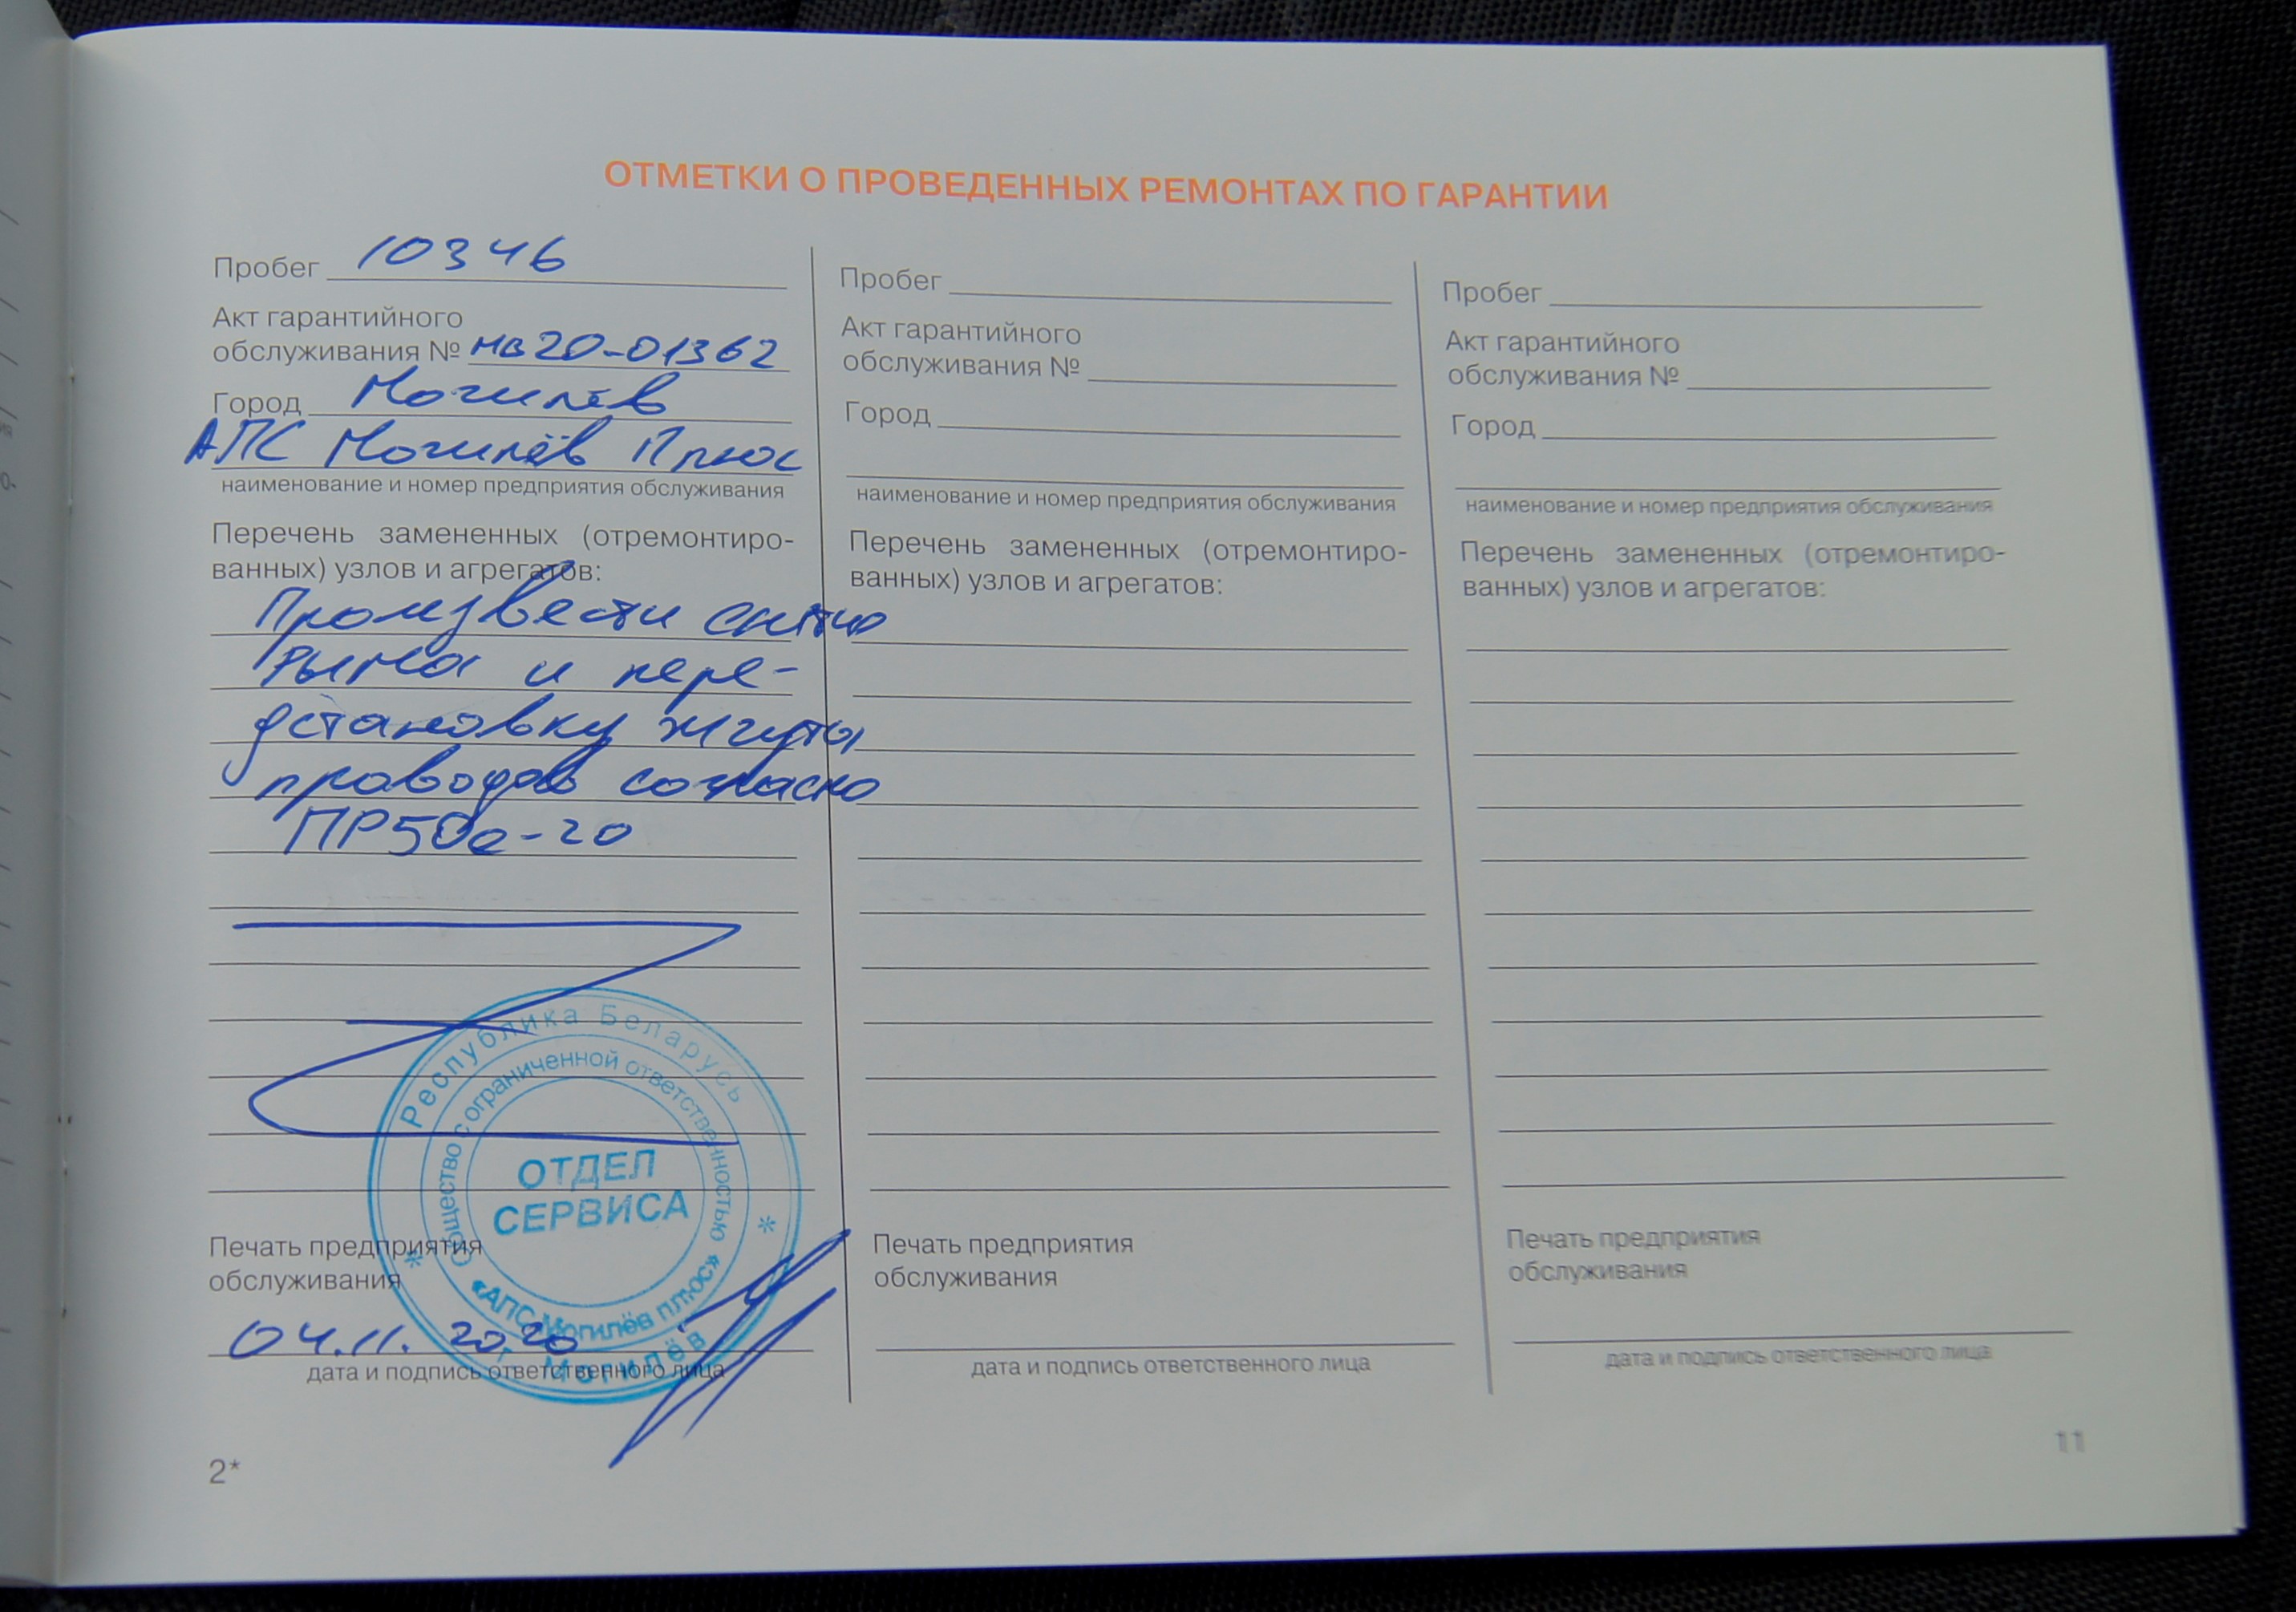 ОТМЕТКИ О ПРОВЕДЕННЫХ РЕМОНТАХ ПО ГАРАНТИИ
Пробег 10346
Акт гарантийного
обслуживания № МВ20-01362
Город Могилёв
АПС Могилёв Плюс
наименование и номер предприятия обслуживания
Перечень замененных (отремонтиро-
ванных) узлов и агрегатов:
Произвести
и пере-
установку жгуты
проводов согласно
Республика Беларусь
Общество с ограниченной ответственностью
ОТДЕЛ
СЕРВИСА
«АПС Могилёв плюс»
г. Могилёв
Печать предприятия
обслуживания
04.11.2020
дата и подпись ответственного лица
2*
Пробег
Акт гарантийного
обслуживания №
Город
наименование и номер предприятия обслуживания
Перечень замененных (отремонтиро-
ванных) узлов и агрегатов:
Печать предприятия
обслуживания
дата и подпись ответственного лица
Пробег
Акт гарантийного
обслуживания №
Город
наименование и номер предприятия обслуживания
Перечень замененных (отремонтиро-
ванных) узлов и агрегатов:
Печать предприятия
обслуживания
дата и подпись ответственного лица
11